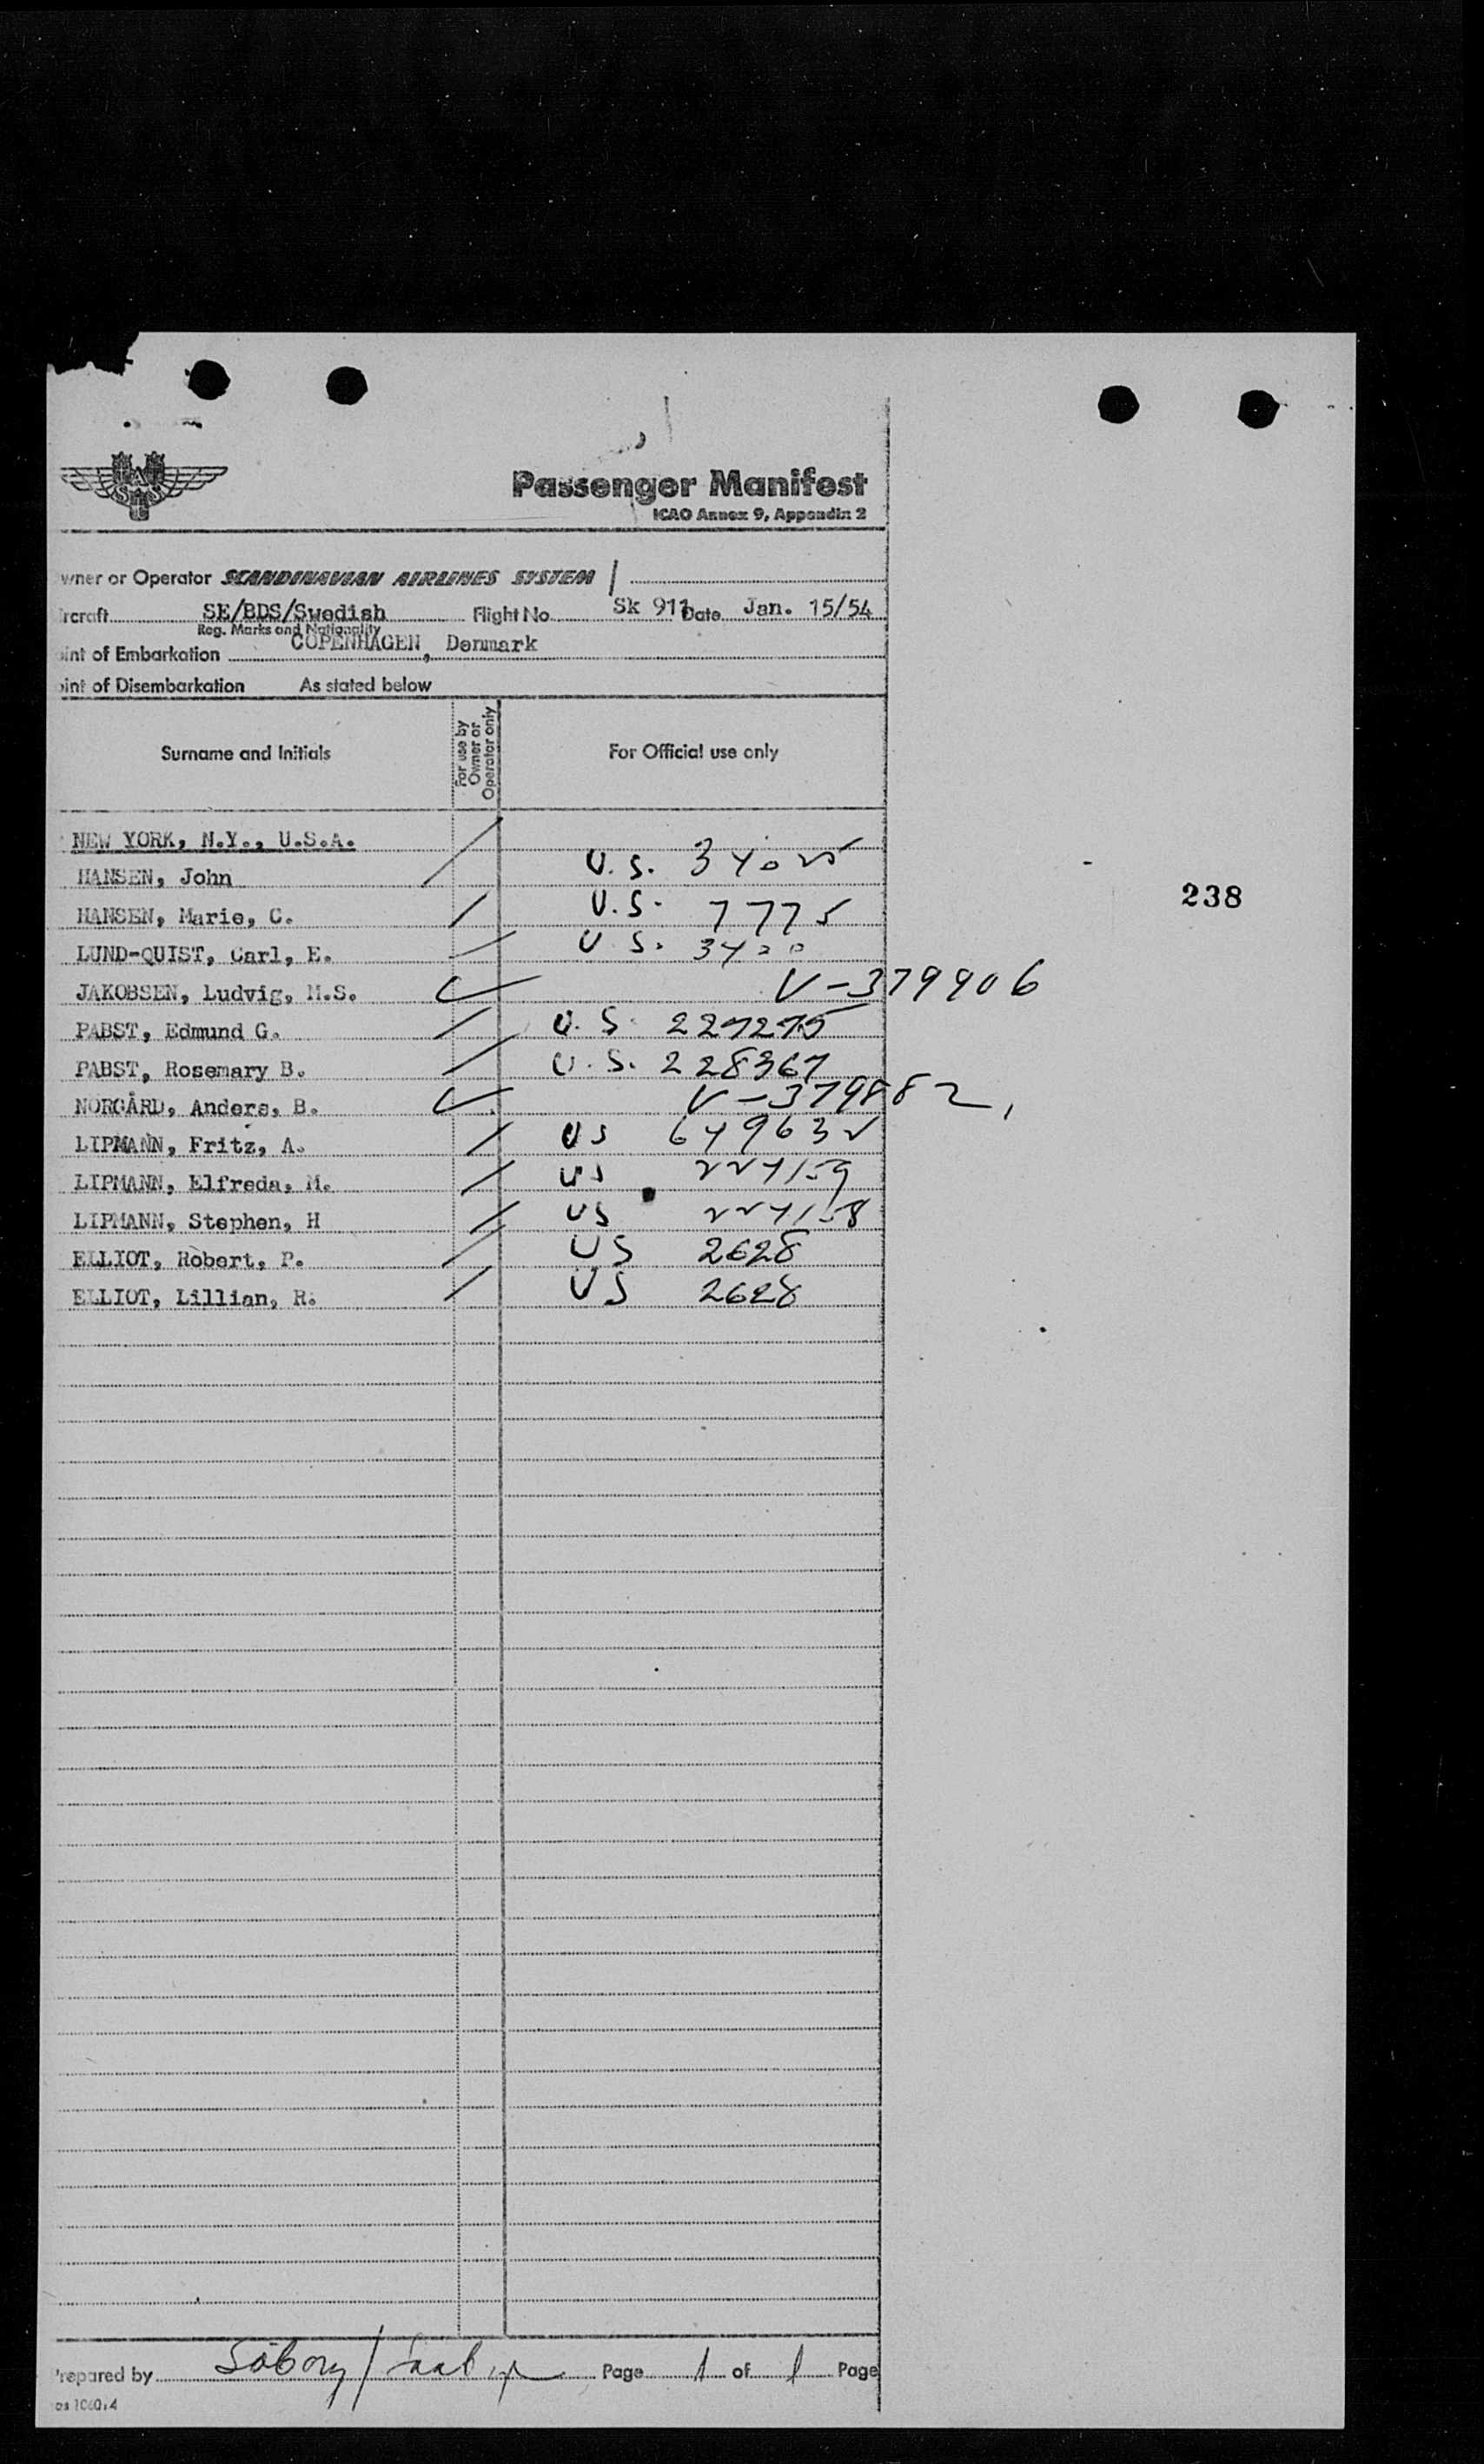 SAS
Passenger Manifest
ICAO Annex 9, Appendix 2
wner or Operator SCANDINAVIAN AIRLINES SYSTEM
ircraft SE/BDS/Swedish Flight No. Sk 911 Date Jan. 15/54
Reg. Marks and Nationality
oint of Embarkation COPENHAGEN, Denmark
oint of Disembarkation As stated below
Surname and Initials For use by Owner or Operator only For Official use only
NEW YORK, N.Y., U.S.A.
HANSEN, John U.S.
238
HANSEN, Marie, C. U.S. 7775
LUND-QUIST, Carl, E. U.S.
JAKOBSEN, Ludvig, M.S. V-379906
PABST, Edmund G. U.S.
PABST, Rosemary B. U.S. 228367
NORGÅRD, Anders, B. V-379882
LIPMANN, Fritz, A. US 649632
LIPMANN, Elfreda, M. US
LIPMANN, Stephen, H US
ELLIOT, Robert, P. US 2628
ELLIOT, Lillian, R. US 2628
repared by Page 1 of 1 Page